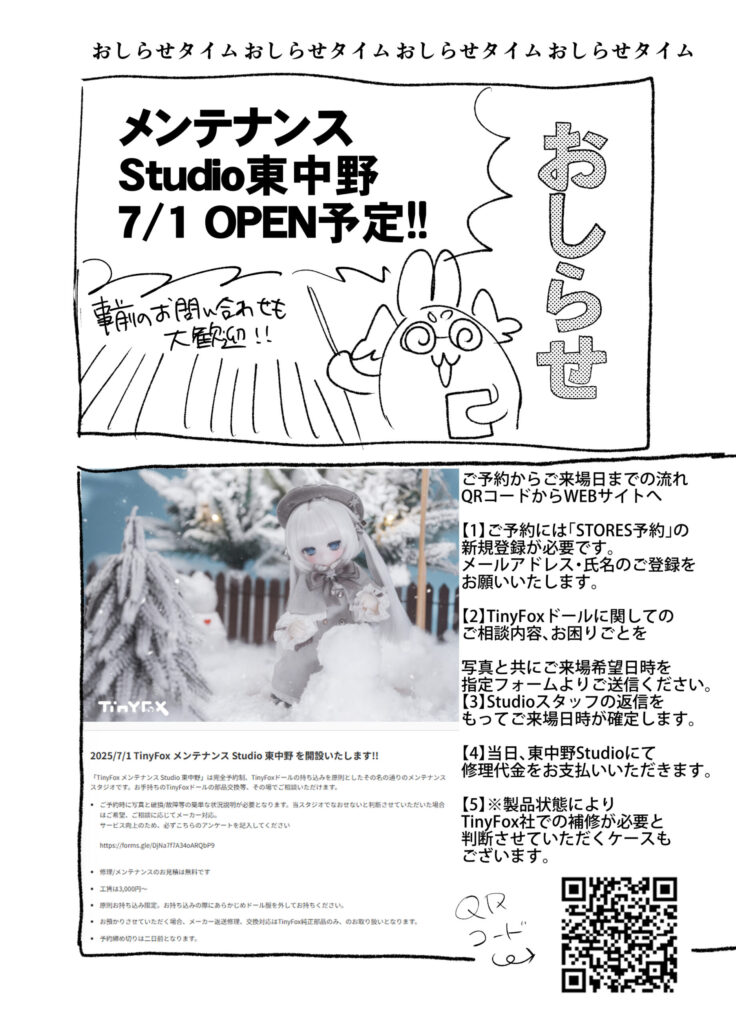 おしらせタイム おしらせタイム おしらせタイム おしらせタイム
メンテナンス
Studio東中野
7/1 OPEN予定!!
おしらせ
事前のお問い合わせも
大歓迎!!
TinYFoX
2025/7/1 TinyFox メンテナンス Studio 東中野 を開設いたします!!
「TinyFox メンテナンス Studio 東中野」は完全予約制、TinyFoxドールの持ち込みを原則としたその名の通りのメンテナンス
スタジオです。お手持ちのTinyFoxドールの部品交換等、その場でご相談いただけます。
• ご予約時に写真と破損/故障等の簡単な状況説明が必要となります。当スタジオでなおせないと判断させていただいた場合
はご希望、ご相談に応じてメーカー対応。
サービス向上のため、必ずこちらのアンケートを記入してください
https://forms.gle/DjNa7f7A34oARQbP9
• 修理/メンテナンスのお見積は無料です
• 工賃は3,000円〜
• 原則お持ち込み限定。お持ち込みの際にあらかじめドール服を外してお持ちください。
• お預かりさせていただく場合、メーカー返送修理、交換対応はTinyFox純正部品のみ、のお取り扱いとなります。
• 予約締め切りは二日前となります。
ご予約からご来場日までの流れ
QRコードからWEBサイトへ
【1】ご予約には「STORES予約」の
新規登録が必要です。
メールアドレス・氏名のご登録を
お願いいたします。
【2】TinyFoxドールに関しての
ご相談内容、お困りごとを
写真と共にご来場希望日時を
指定フォームよりご送信ください。
【3】Studioスタッフの返信を
もってご来場日時が確定します。
【4】当日、東中野Studioにて
修理代金をお支払いいただきます。
【5】※製品状態により
TinyFox社での補修が必要と
判断させていただくケースも
ございます。
QR
コード